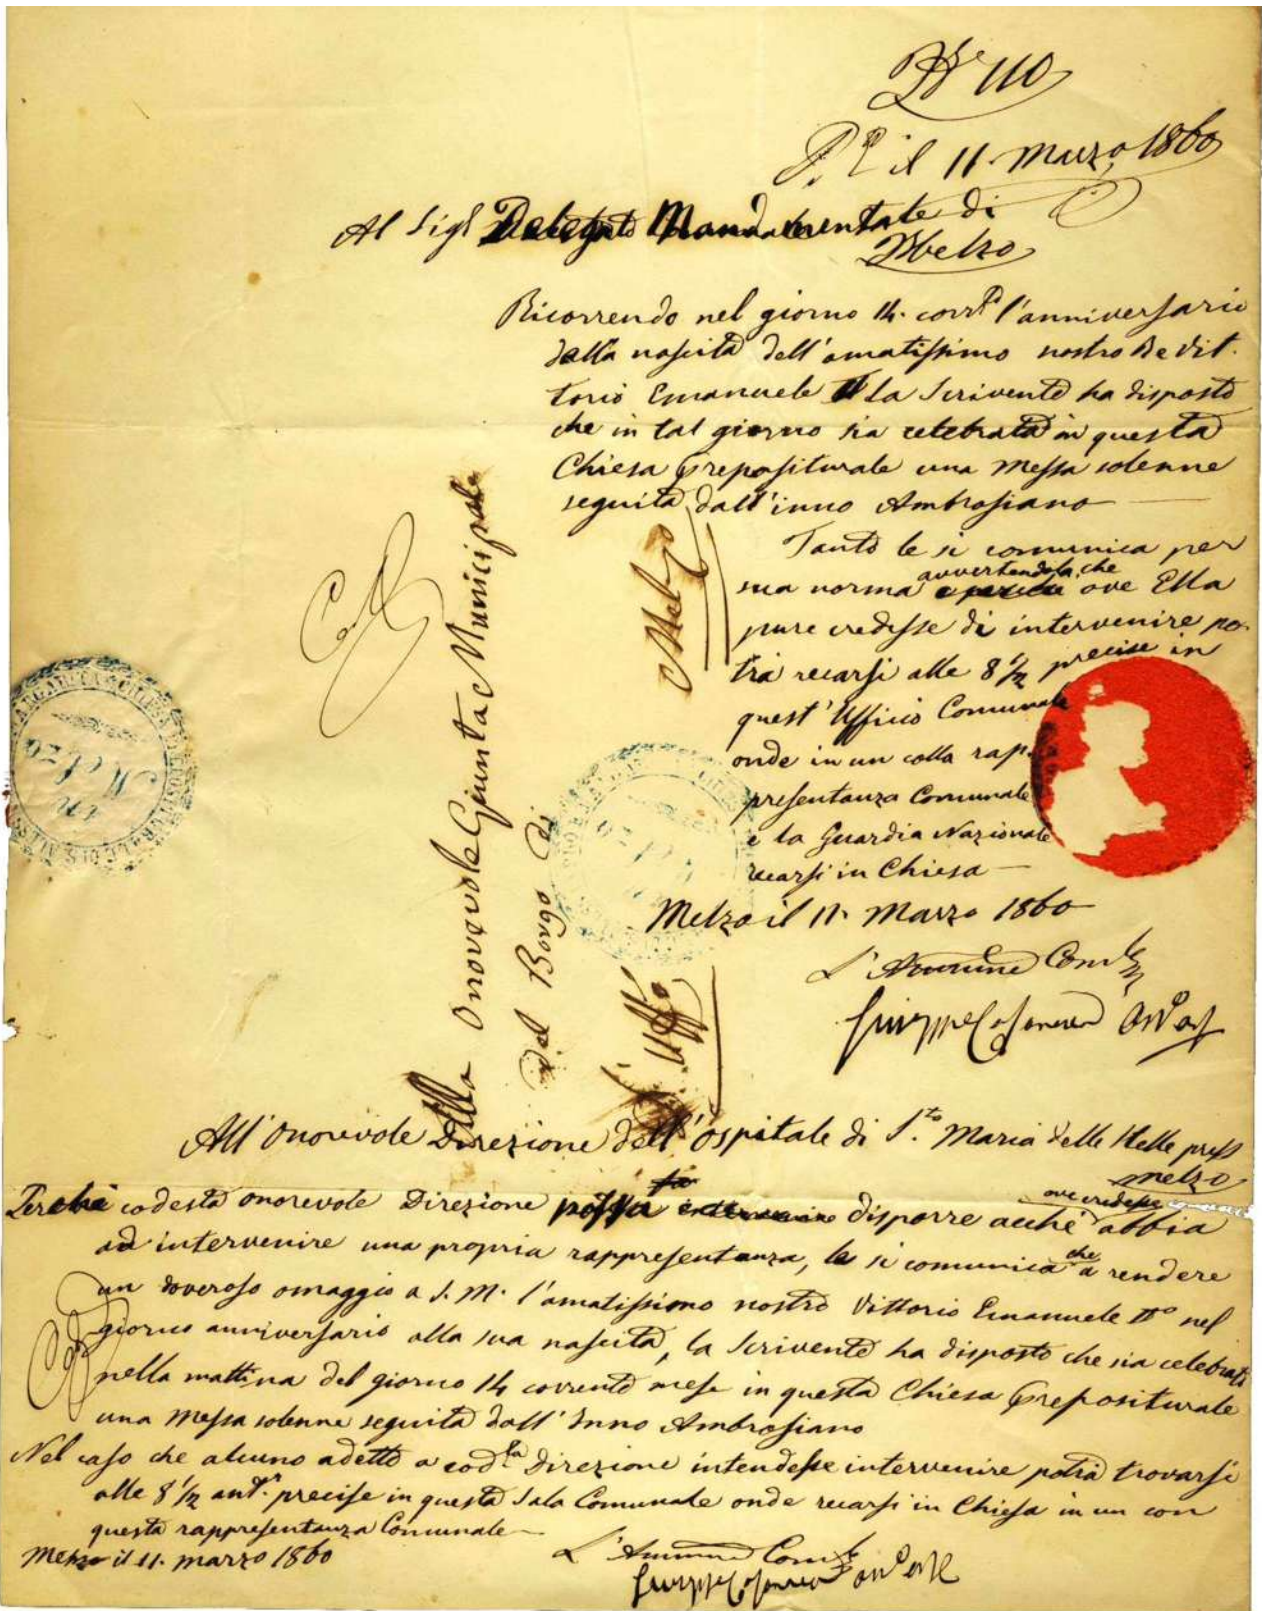 N.º 110
P. E il 11 Marzo, 1860
Al Sigr Delegato Mandamentale di
Melzo
Ricorrendo nel giorno 14. corrte l'anniversario
della nascita dell'amatissimo nostro Re Vit-
torio Emanuele II La Scrivente ha disposto
che in tal giorno sia celebrata in questa
Chiesa Prepositurale una Messa solenne
seguita dall'inno Ambrosiano
Tanto le si comunica per
sua norma avvertendola che ove Ella
pure credesse di intervenire po-
trà recarsi alle 8 1/2 precise in
quest'Ufficio Comunale
onde in un colla rap-
presentanza Comunale
e la Guardia Nazionale
recarsi in Chiesa
Melzo il 11. Marzo 1860
L'Ammne Comle
Alla Onorevole Giunta Municipale
del Borgo di
Melzo
Uffo
in Melzo
All'Onorevole Direzione dell'Ospitale di S.ta Maria delle Stelle press
Melzo
Perchè codesta onorevole Direzione possa disporre acchè ove credesse abbia
ad intervenire una propria rappresentanza, le si comunica che a rendere
un doveroso omaggio a S. M. l'amatissimo nostro Vittorio Emanuele IIº nel
giorno anniversario alla sua nascita, la Scrivente ha disposto che sia celebrata
nella mattina del giorno 14 corrente mese in questa Chiesa Prepositurale
una Messa solenne seguita dall'Inno Ambrosiano
Nel caso che alcuno adetto a codta Direzione intendesse intervenire potrà trovarsi
alle 8 1/2 ant. precise in questa Sala Comunale onde recarsi in Chiesa in un con
questa rappresentanza Comunale
Melzo il 11. marzo 1860
L'Ammne Comle